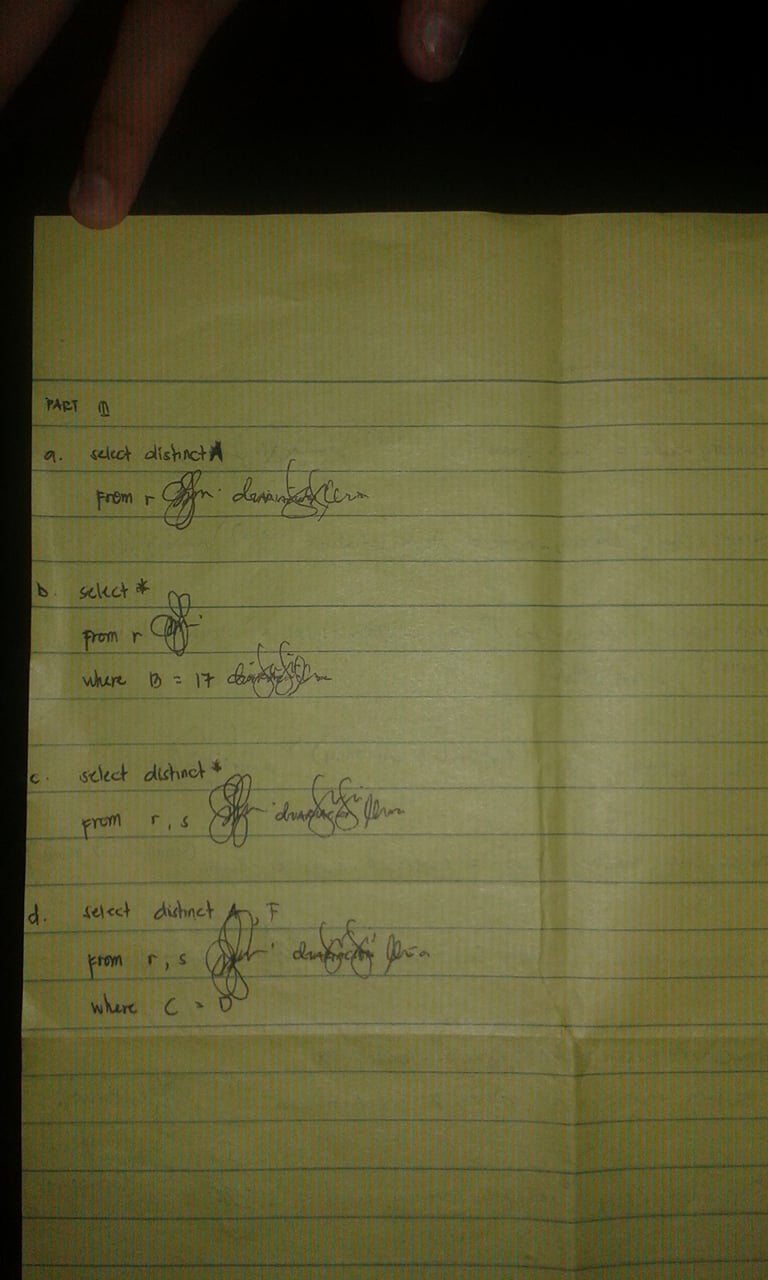 PART III
a. select distinct A
from r
b. select *
from r
where B = 17
c. select distinct *
from r, s
d. select distinct A, F
from r, s
where C = D